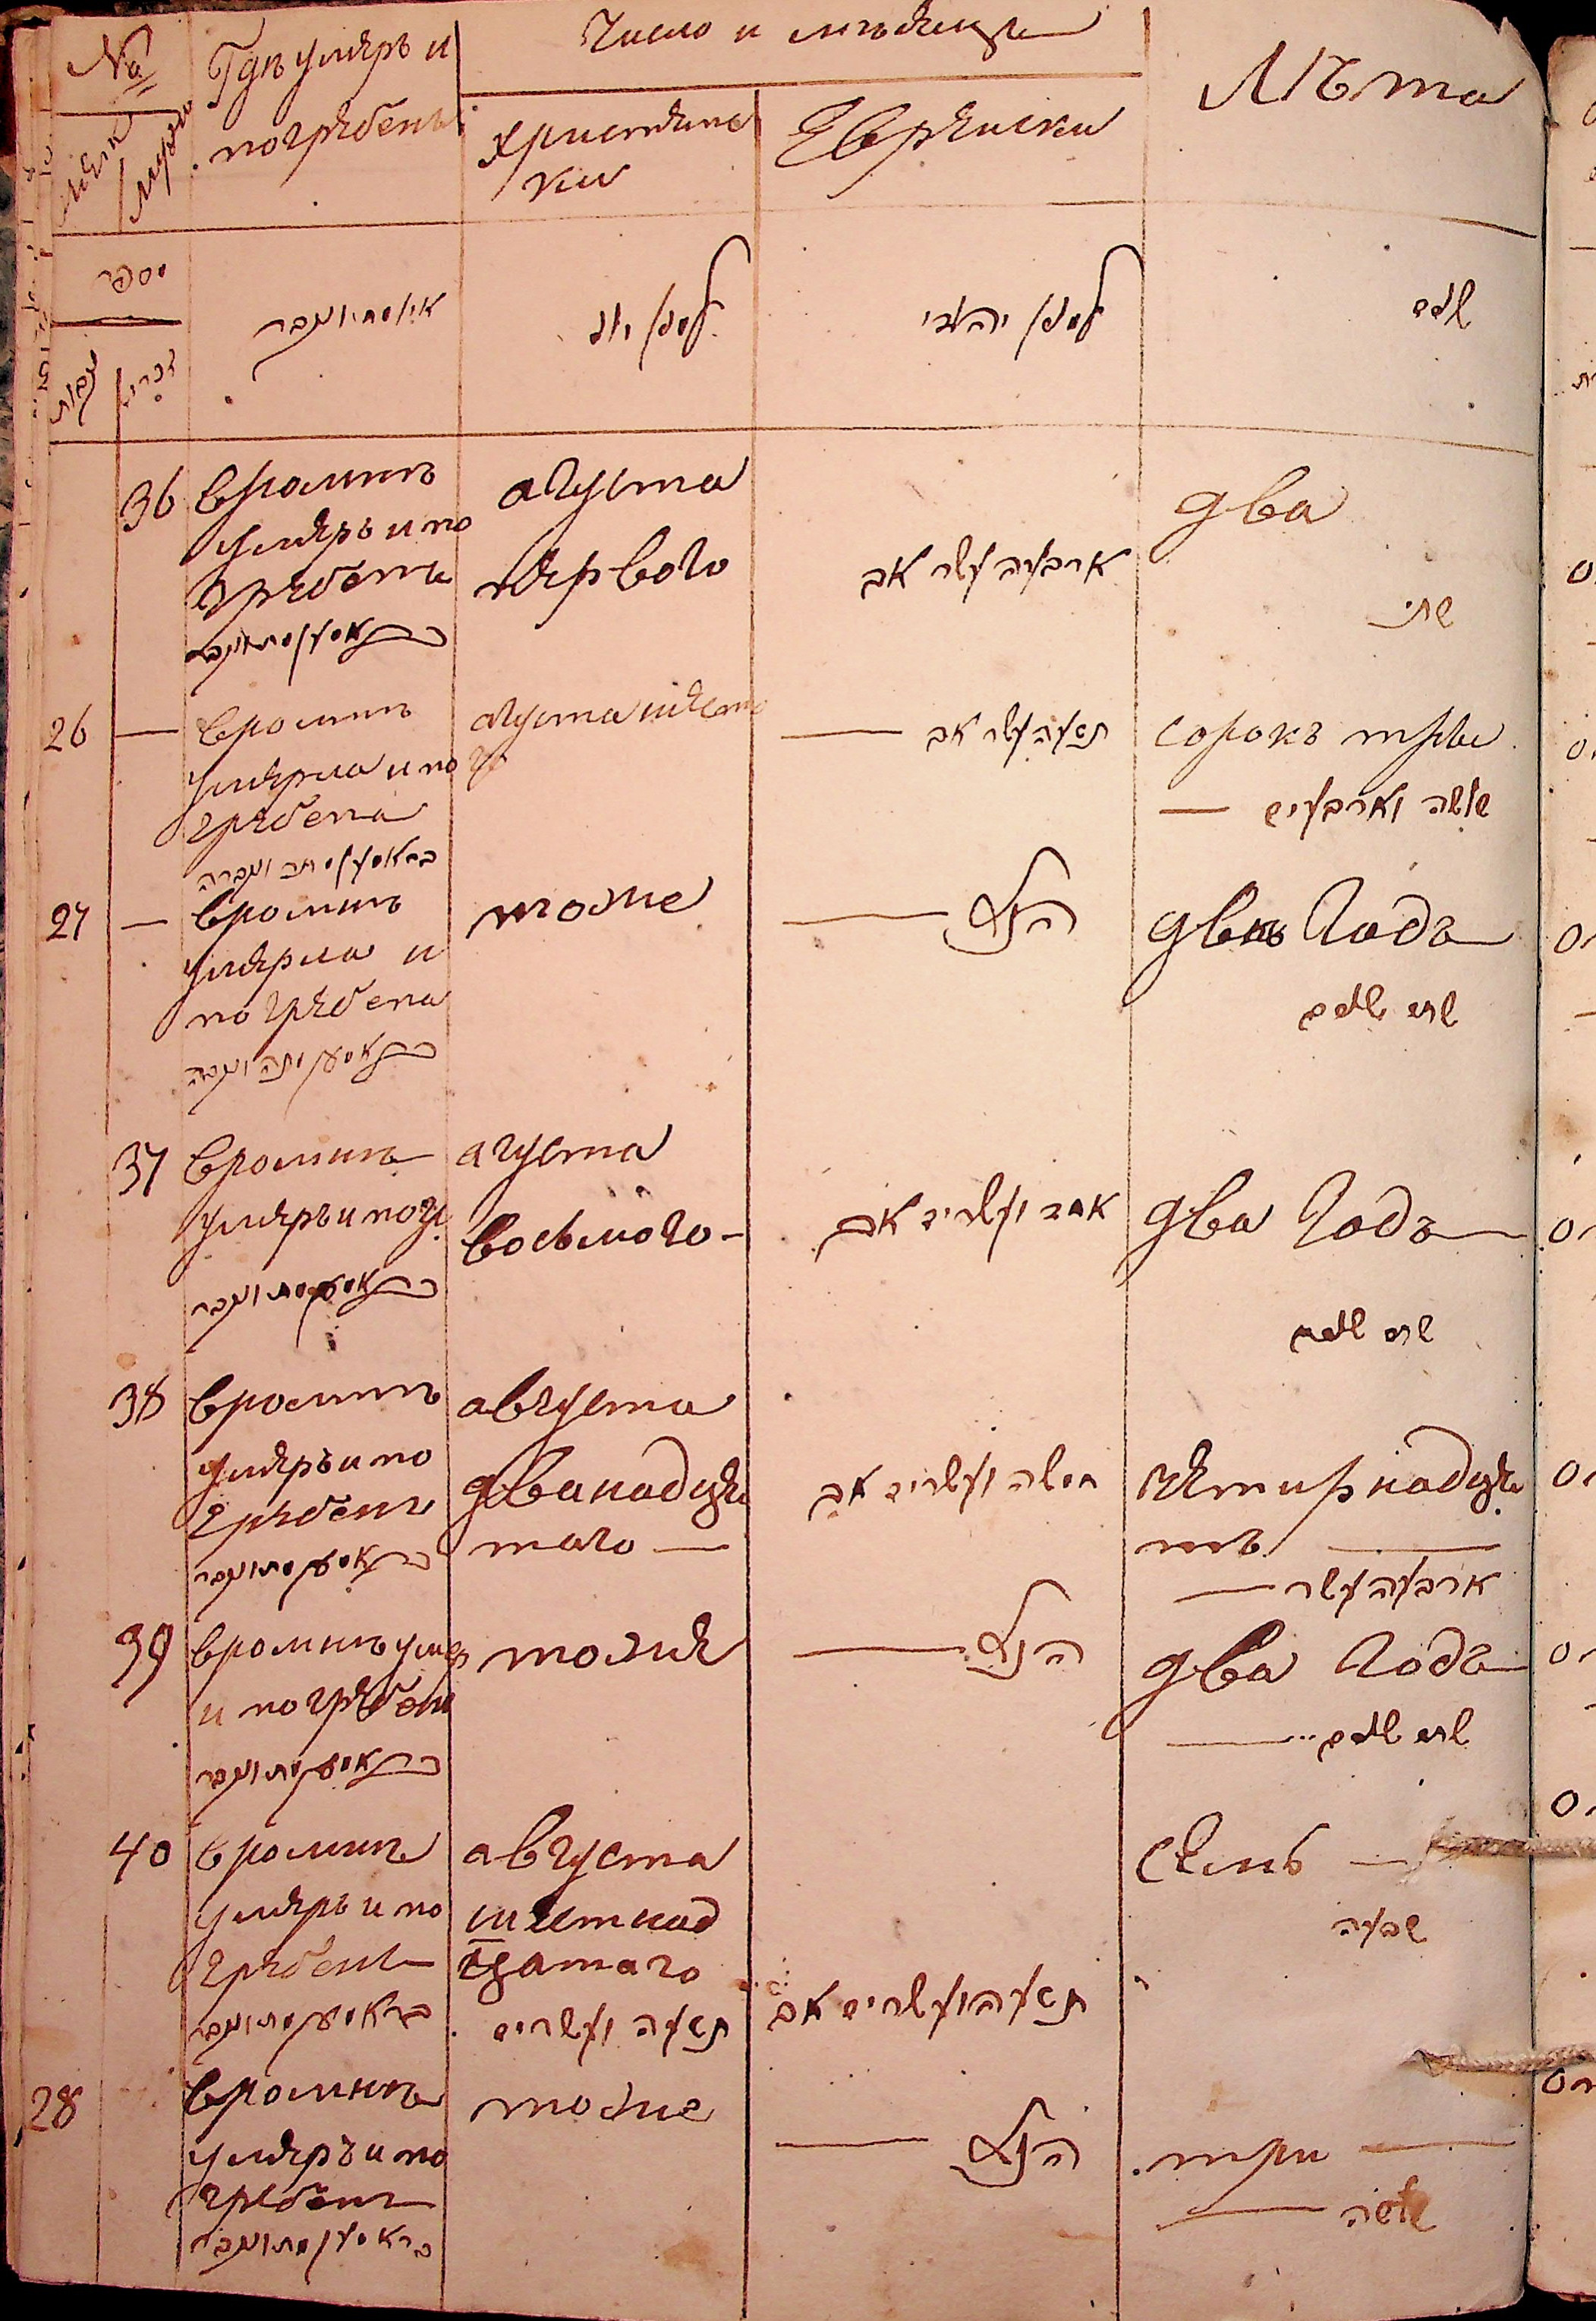 №
Гдѣ умеръ и
погребенъ
Число и мѣсеца
христиенс
кии
Еврейски
Лѣта
женск
мужск
מספר
נקבות
זכרים
איו מת ונקבר
למנין יון
למנין יהודי
שנים
36 вромнѣ
умеръ и по
гребенъ
בראמען מת ונקבר
августа
первого
ארבעה עשר אב
два
שתי
26 — вромнѣ
умерла и по
гребена
בראמען מתה ונקברה
августа шесто
го
— תשעה עשר אב
сорокъ тры
— שלשה וארבעים
27 — вромнѣ
умерла и
погребена
בראמען מתה ונקברה
тоже
— הנ״ל
двѣ года
שתי שנים
37 вромнѣ
умеръ и погр
בראמען מת ונקבר
августа
восьмого —
אחד ועשרים אב
два года
שתי שנים
38 вромнѣ
умеръ и по
гребенъ
בראמען מת ונקבר
августа
дванадце
таго —
חמשה ועשרים אב
четирнадце
ть —
ארבעה עשר —
39 вромнѣ умер
и погребенъ
בראמען מת ונקבר
тоже
— הנ״ל
два года
שתי שנים —
40 вромнѣ
умеръ и по
гребенъ
בראמען מת ונקבר
августа
шестнад
цатаго
תשעה ועשרים
תשעה ועשרים אב
семь —
שבעה
28 вромнѣ
умеръ и по
гребенъ
בראמען מת ונקבר
тоже
— הנ״ל
три —
— שלשה